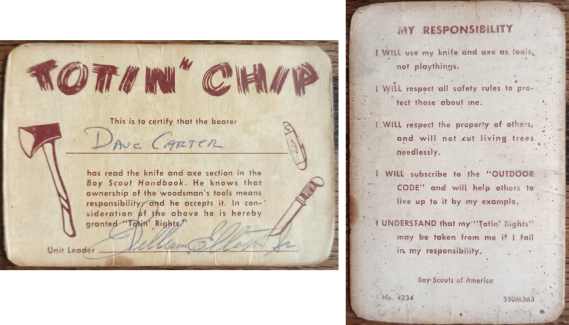 TOTIN' CHIP
This is to certify that the bearer
Dave Carter
has read the knife and axe section in the
Boy Scout Handbook. He knows that
ownership of the woodsman's tools means
responsibility and he accepts it. In con-
sideration of the above he is hereby
granted "Totin' Rights."
Unit Leader William Elliott Jr
MY RESPONSIBILITY
I WILL use my knife and axe as tools,
not playthings.
I WILL respect all safety rules to pro-
tect those about me.
I WILL respect the property of others,
and will not cut living trees
needlessly.
I WILL subscribe to the "OUTDOOR
CODE" and will help others to
live up to it by my example.
I UNDERSTAND that my "Totin' Rights"
may be taken from me if I fail
in my responsibility.
Boy Scouts of America
No. 4234 350M363